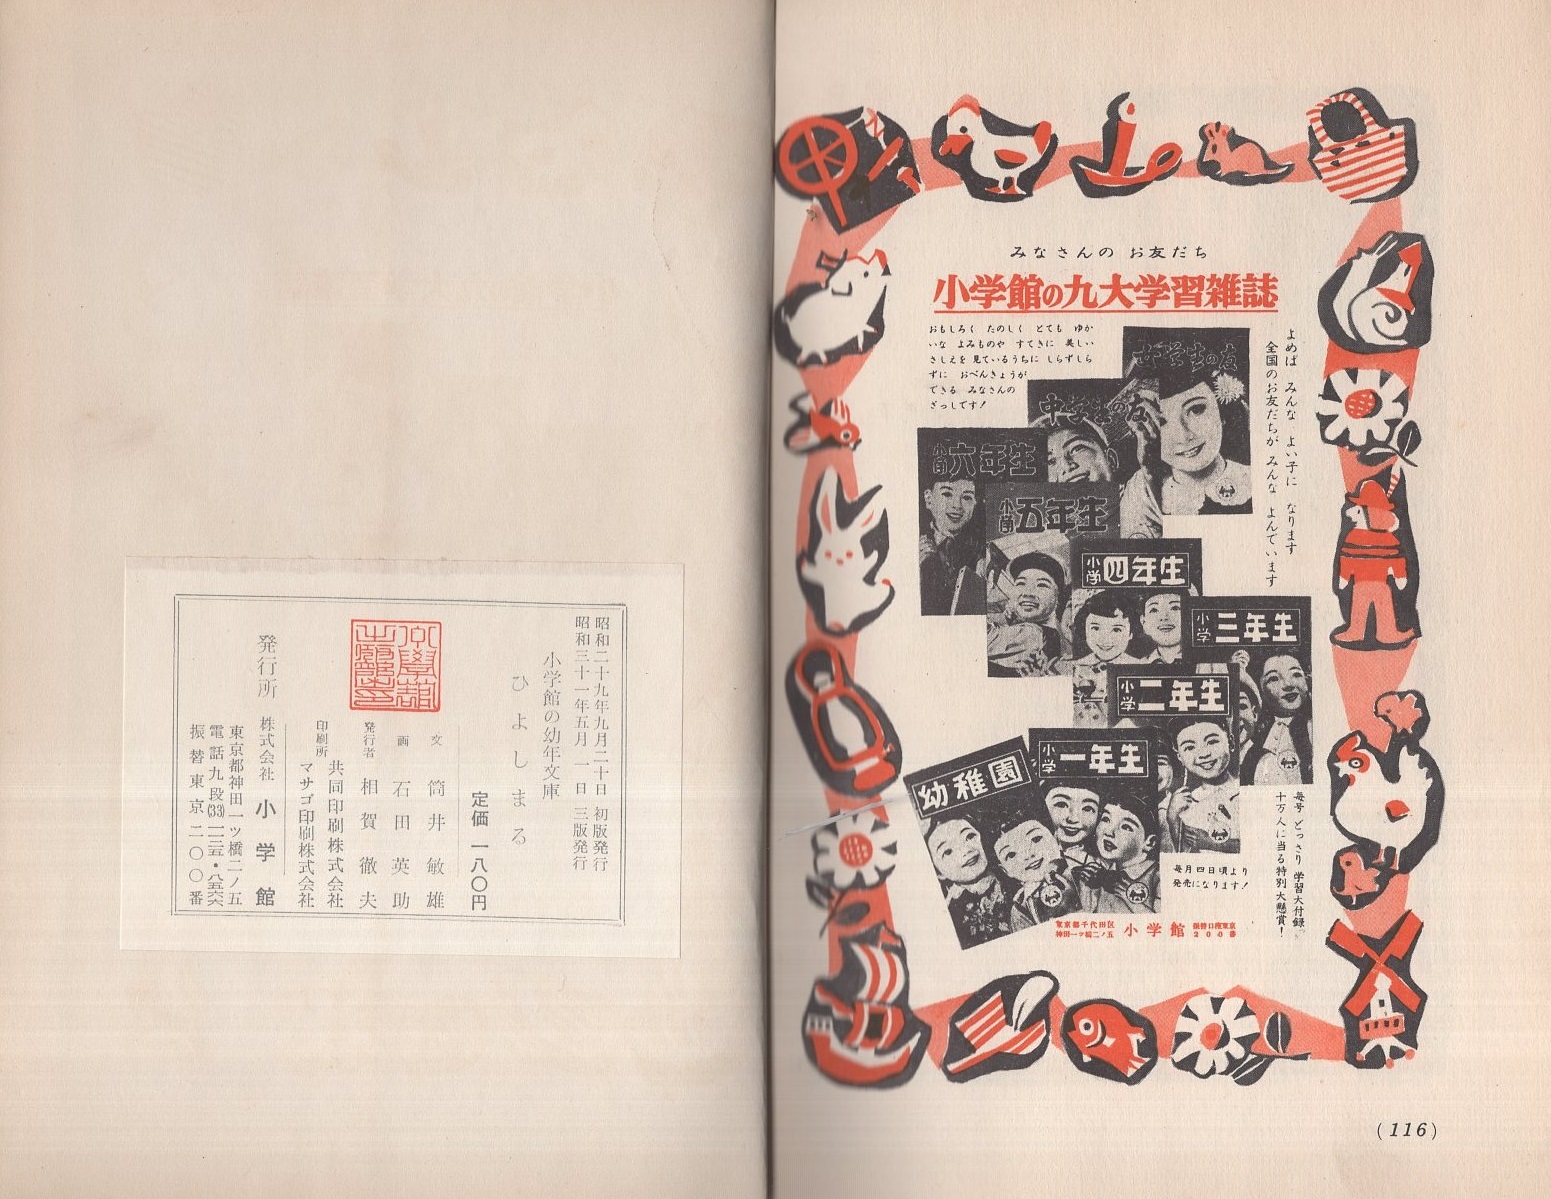 みなさんの お友だち
小学館の九大学習雑誌
よめば みんな よい子に なります
全国のお友だちが みんな よんでいます
おもしろく たのしく とても ゆか
いな よみものや すてきに 美しい
さしえを 見ているうちに しらずしら
ずに おべんきょうが
できる みなさんの
ざっしです！
女学生の友
中学生の友
小学六年生
小学五年生
小学四年生
小学三年生
小学二年生
小学一年生
幼稚園
毎号 どっさり 学習大付録
十万人に当る特別大懸賞！
毎月四日頃より
発売になります！
東京都千代田区
神田一ツ橋二ノ五
小学館
振替口座東京
200番
(116)
昭和二十九年九月二十日 初版発行
昭和三十一年五月 一 日 三版発行
小学館の幼年文庫
ひよしまる
定価 一八〇円
文 筒井敏雄
画 石田英助
発行者 相賀徹夫
印刷所 共同印刷株式会社
マサゴ印刷株式会社
発行所 株式会社 小学館
東京都神田一ツ橋二ノ五
振替東京二〇〇番